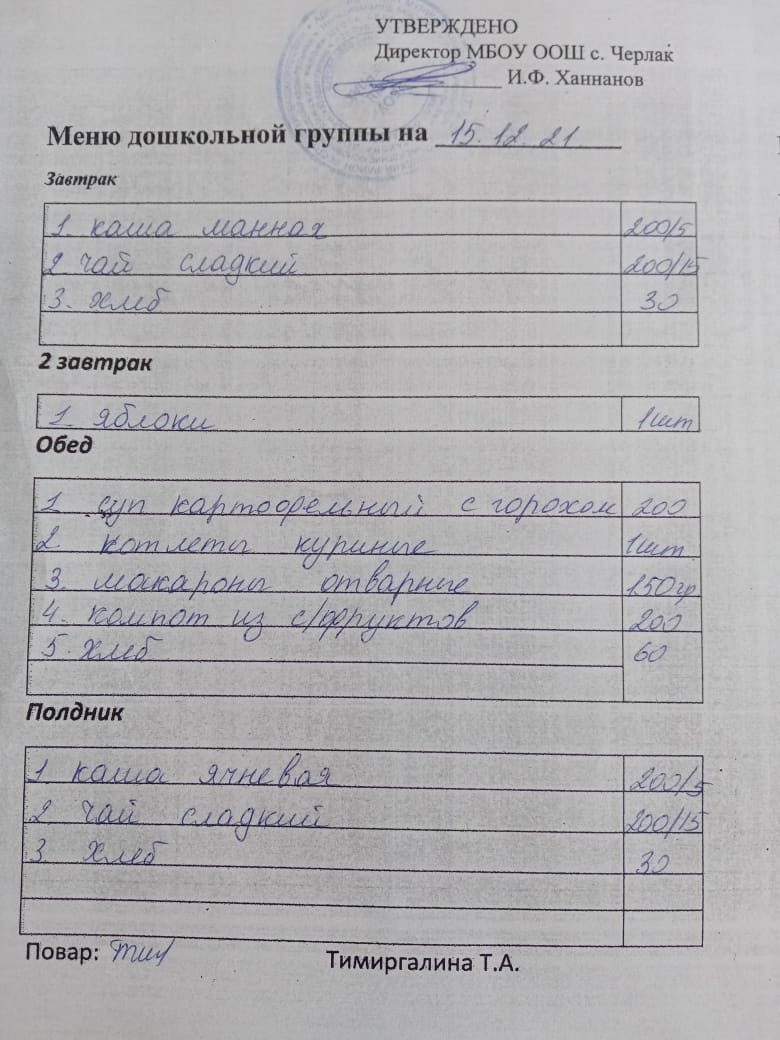 УТВЕРЖДЕНО
Директор МБОУ ООШ с. Черлак
И.Ф. Ханнанов
Меню дошкольной группы на 15.12.21
Завтрак
1. каша манная 200/5
2 чай сладкий 200/15
3. хлеб 30
2 завтрак
1. яблоки 1шт
Обед
1 суп картофельный с горохом 200
2. котлеты куриные 1шт
3. макароны отварные 150гр
4. компот из с/фруктов 200
5. хлеб 60
Полдник
1 каша ячневая 200/5
2 чай сладкий 200/15
3. хлеб 30
Повар: Тимиргалина Т.А.